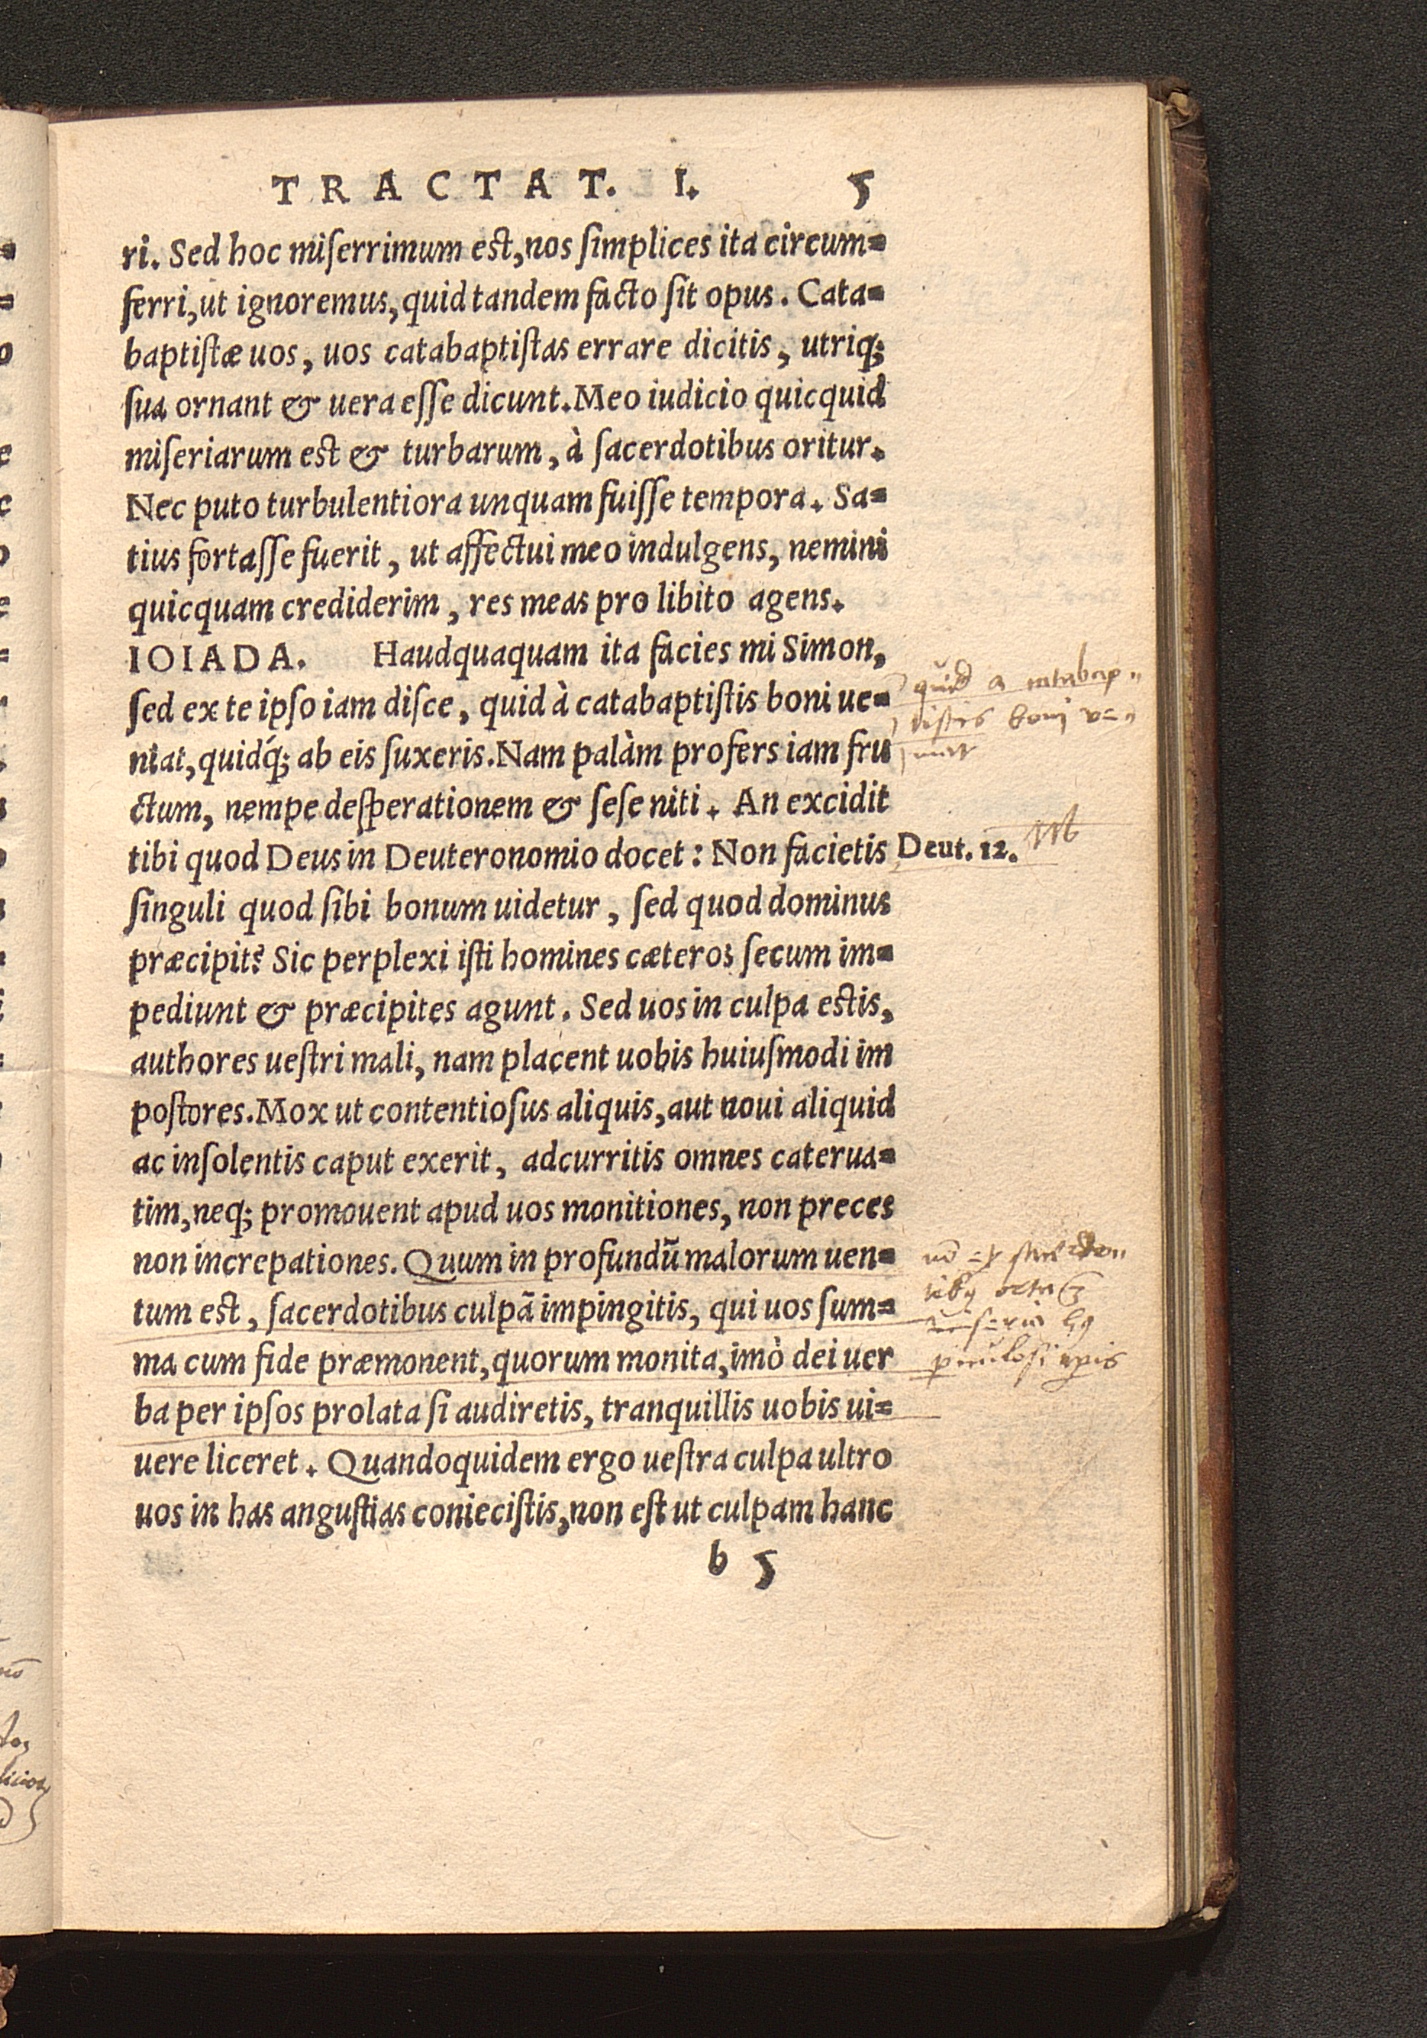 TRACTAT. I. 5
ri. Sed hoc miſerrimum est, nos ſimplices ita circum=
ferri, ut ignoremus, quid tandem facto ſit opus. Cata=
baptiſtæ uos, uos catabaptiſtas errare dicitis, utriq;
ſua ornant & uera eſſe dicunt. Meo iudicio quicquid
miſeriarum est & turbarum, à ſacerdotibus oritur.
Nec puto turbulentiora unquam fuiſſe tempora. Sa=
tius fortaſſe fuerit, ut affectui meo indulgens, nemini
quicquam crediderim, res meas pro libito agens.
IOIADA. Haudquaquam ita facies mi Simon,
ſed ex te ipſo iam diſce, quid à catabaptiſtis boni ue=
niat, quidq́; ab eis ſuxeris. Nam palàm profers iam fru
ctum, nempe deſperationem & ſeſe niti. An excidit
tibi quod Deus in Deuteronomio docet: Non facietis
ſinguli quod ſibi bonum uidetur, ſed quod dominus
præcipit? Sic perplexi iſti homines cæteros ſecum im=
pediunt & præcipites agunt. Sed uos in culpa estis,
authores ueſtri mali, nam placent uobis huiuſmodi im
poſtores. Mox ut contentioſus aliquis, aut noui aliquid
ac inſolentis caput exerit, adcurritis omnes caterua=
tim, neq; promouent apud uos monitiones, non preces
non increpationes. Quum in profundũ malorum uen=
tum est, ſacerdotibus culpã impingitis, qui uos ſum=
ma cum fide præmonent, quorum monita, imò dei uer
ba per ipſos prolata ſi audiretis, tranquillis uobis ui=
uere liceret. Quandoquidem ergo ueſtra culpa ultro
uos in has anguſtias conieciſtis, non eſt ut culpam hanc
b 5
quid a catabap
tistis boni ve
niat
Deut. 12.